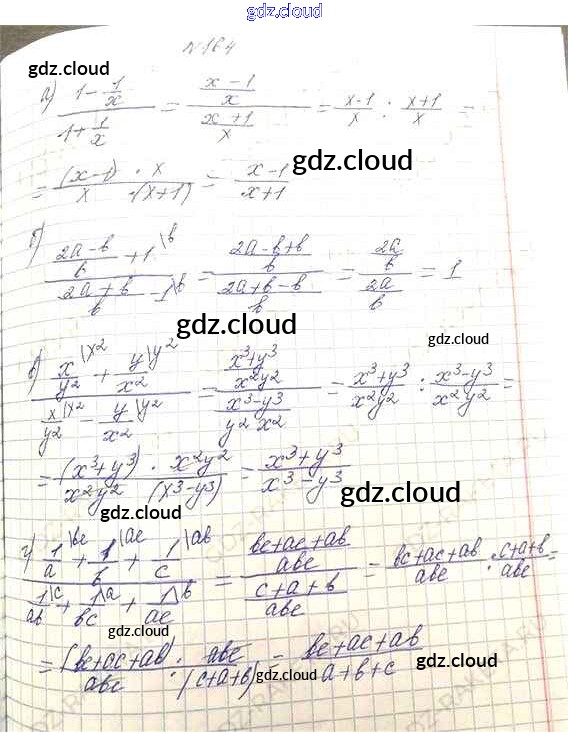 gdz.cloud
N164
gdz.cloud
а) (1 - 1/x)/(1 + 1/x) = ((x - 1)/x)/((x + 1)/x) = (x-1)/x : (x+1)/x =
gdz.cloud
= (x-1)/x · x/(x+1) = (x-1)/(x+1)
б) ((2a-b)/b + 1\b)/((2a+b)/b - 1\b) = ((2a-b+b)/b)/((2a+b-b)/b) = (2a/b)/(2a/b) = 1
gdz.cloud
gdz.cloud
в) (x\x²/y² + y\y²/x²)/(x\x²/y² - y\y²/x²) = ((x³+y³)/(x²y²))/((x³-y³)/(y²x²)) = (x³+y³)/(x²y²) : (x³-y³)/(x²y²) =
gdz.cloud
= (x³+y³)/(x²y²) · x²y²/(x³-y³) = (x³+y³)/(x³-y³)
gdz.cloud
г) (1\bc/a + 1\ac/b + 1\ab/c)/(1\c/ab + 1\a/bc + 1\b/ac) = ((bc+ac+ab)/abc)/((c+a+b)/abc) = (bc+ac+ab)/abc : (c+a+b)/abc =
gdz.cloud
= (bc+ac+ab)/abc · abc/(c+a+b) = (bc+ac+ab)/(a+b+c)
gdz.cloud
gdz.cloud